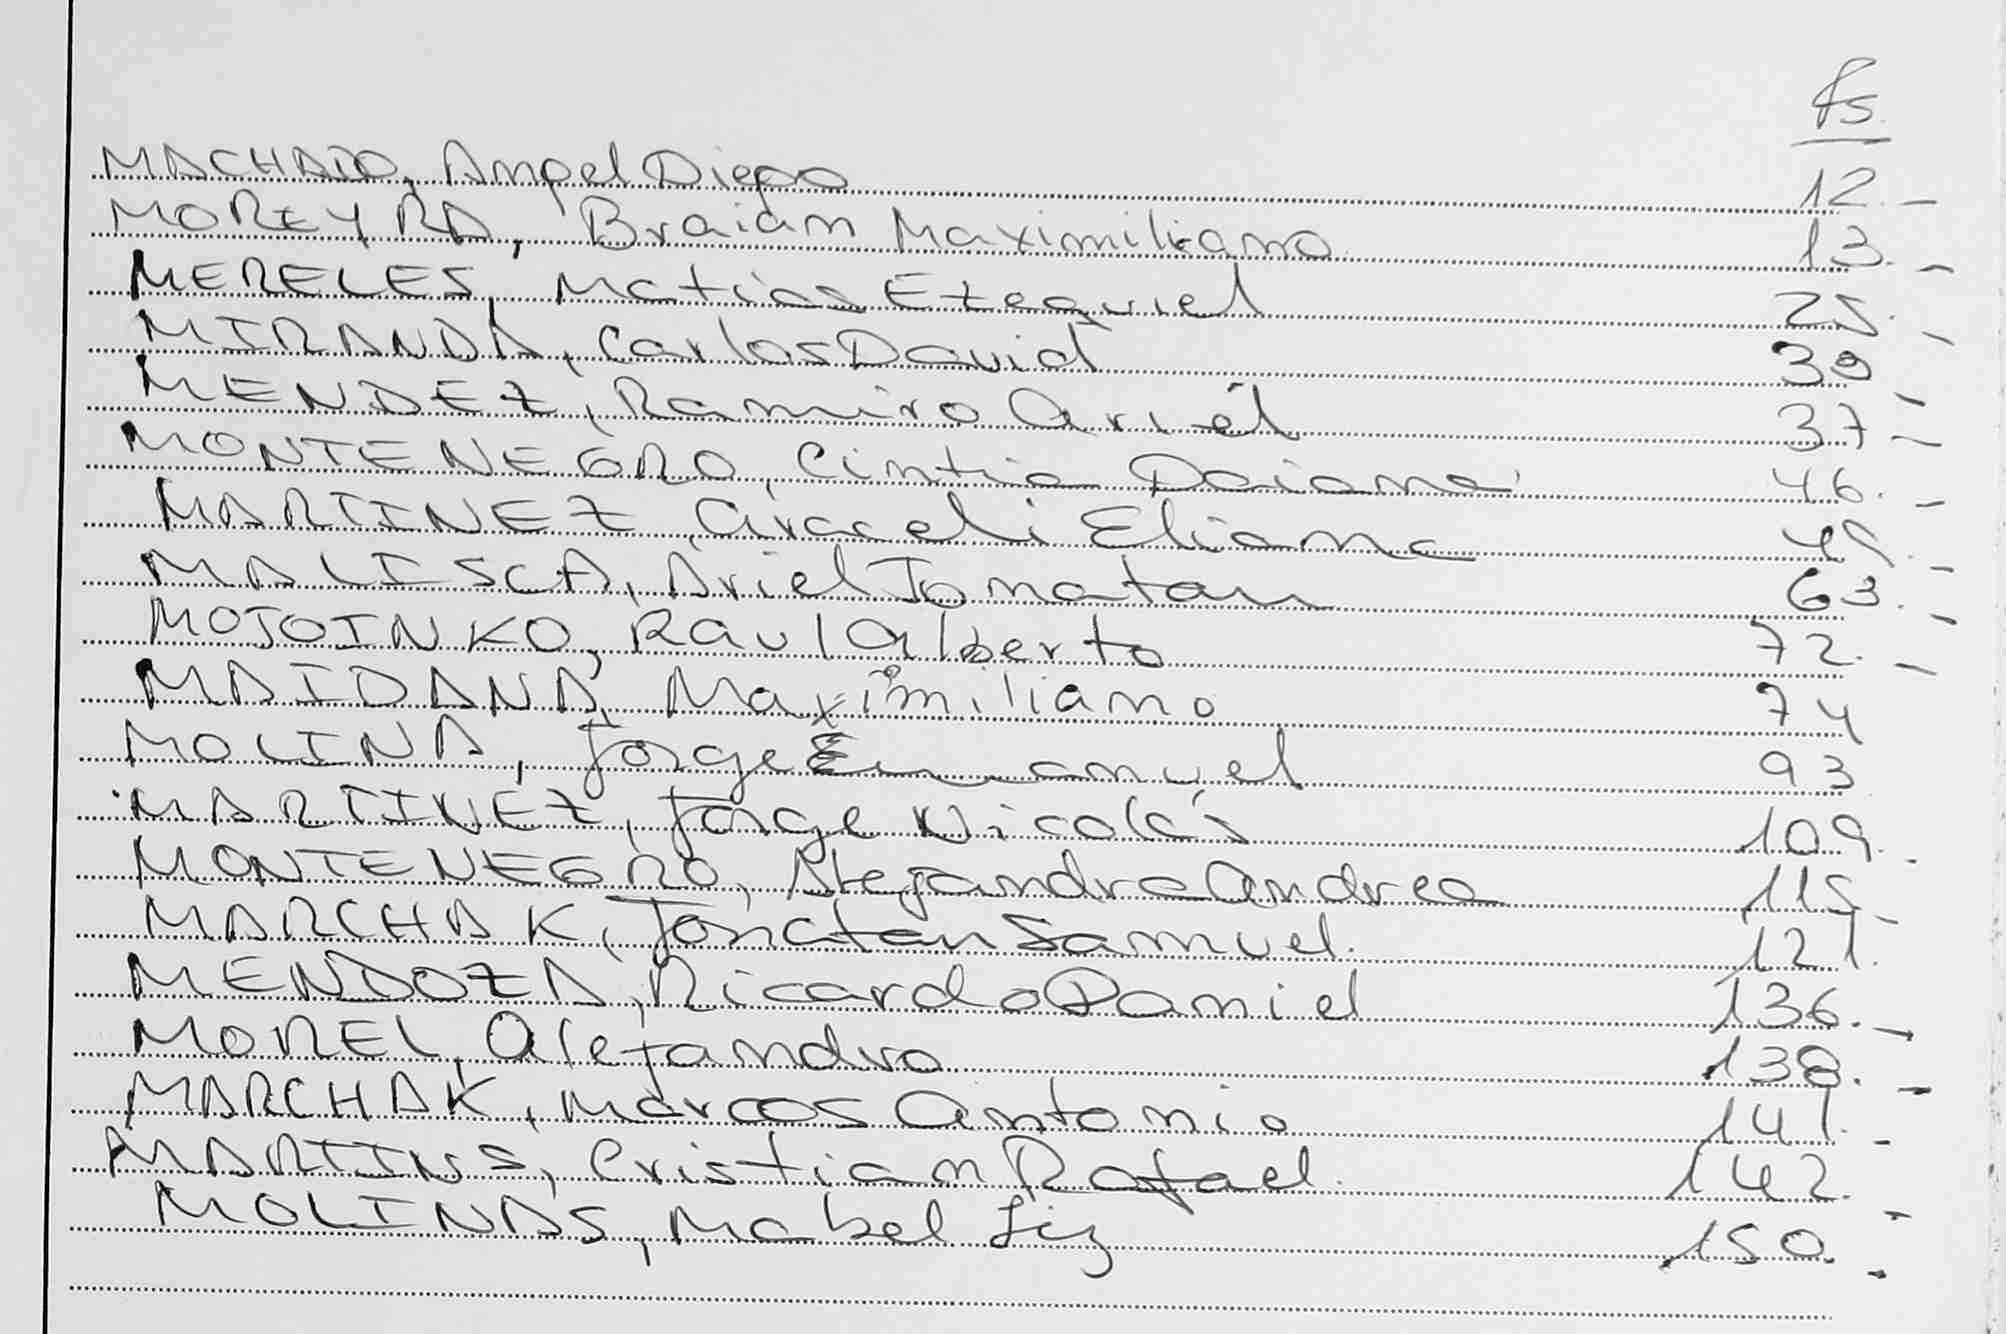 fs.
MACHADO, Angel Diego 12.-
MOREYRA, Braian Maximiliano 13.-
MERELES, Matias Ezequiel 25.-
MIRANDA, Carlos David 30 -
MENDEZ, Ramiro Ariel 37 -
MONTENEGRO, Cintia Daiana 46.-
MARTINEZ, Araceli Eliana 49.-
MALISCA, Ariel Jonatan 63.-
MOJOINKO, Raul Alberto 72.-
MAIDANA, Maximiliano 74
MOLINA, Jorge Emanuel 93
MARTINEZ, Jorge Nicolás 109.-
MONTENEGRO, Alejandra Andrea 115-
MARCHAK, Jonatan Samuel. 121.
MENDOZA, Ricardo Daniel 136.-
MOREL, Alejandro 138.-
MARCHAK, Marcos Antonio 141.-
MARTINS, Cristian Rafael. 142.-
MOLINAS, Mabel Liz 150.-